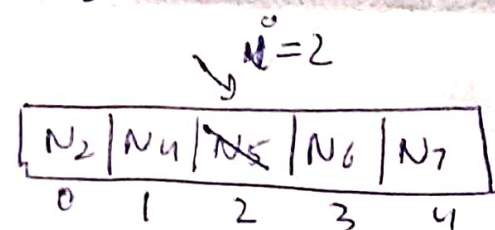 i=2
N2 N4 N5 N6 N7
0 1 2 3 4